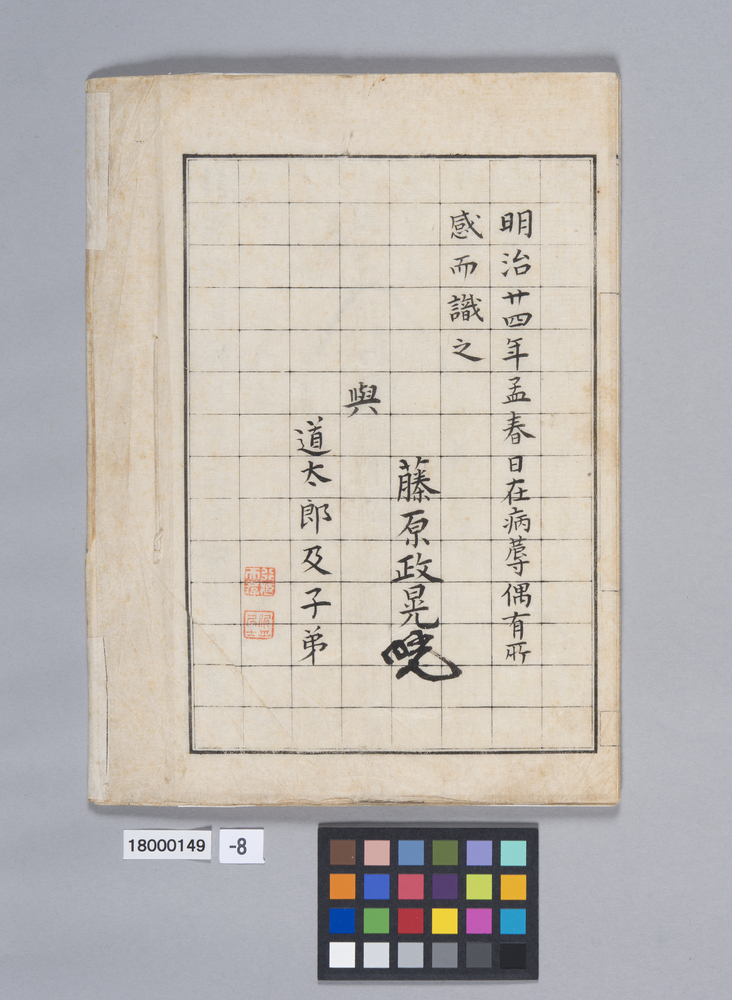 明治廿四年孟春日在病蓐偶有所
感而識之
藤原政晃
與
道太郎及子弟
18000149
-8